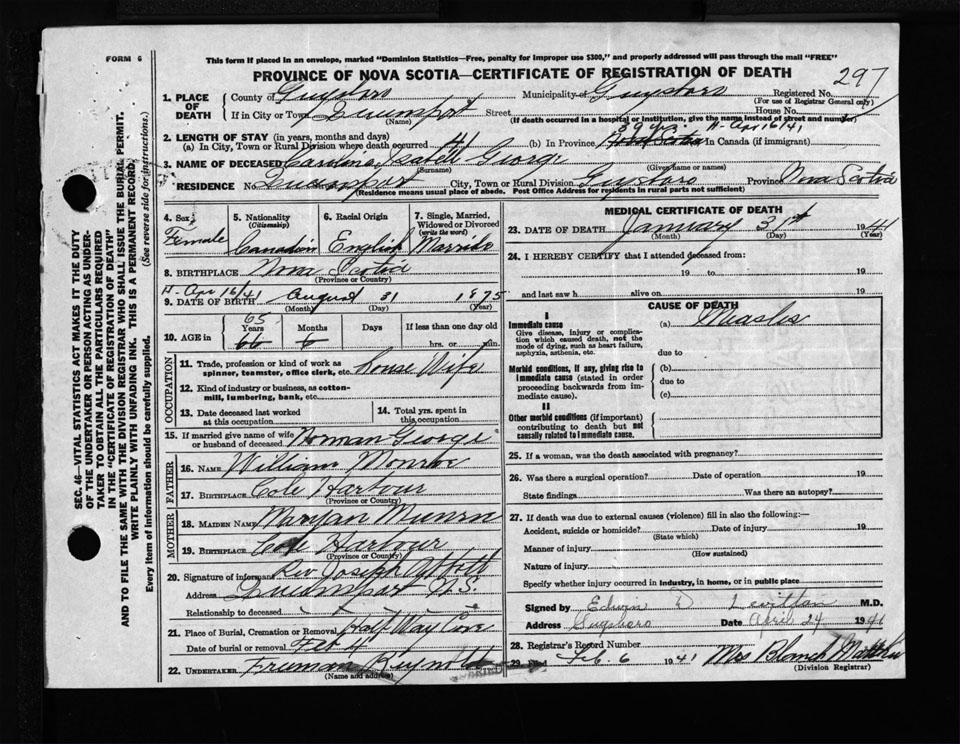 FORM 6
This form if placed in an envelope, marked "Dominion Statistics—Free, penalty for improper use $300," and properly addressed will pass through the mail "FREE"
PROVINCE OF NOVA SCOTIA—CERTIFICATE OF REGISTRATION OF DEATH
297
1. PLACE OF DEATH
County of Guysboro Municipality of Guysboro Registered No.
(For use of Registrar General only)
If in City or Town Street House No.
(Name) (If death occurred in a hospital or institution, give the name instead of street and number)
39 yrs. H-Apr 16/41
2. LENGTH OF STAY (in years, months and days)
(a) In City, Town or Rural Division where death occurred (b) In Province Nova Scotia In Canada (if immigrant)
3. NAME OF DECEASED Caroline George
(Surname) (Given name or names)
RESIDENCE No. City, Town or Rural Division Guysboro Province Nova Scotia
(Residence means usual place of abode. Post Office Address for residents in rural parts not sufficient)
4. Sex Female
5. Nationality (Citizenship) Canadian
6. Racial Origin English
7. Single, Married, Widowed or Divorced (write the word) Married
8. BIRTHPLACE Nova Scotia
(Province or Country)
H-Apr 16/41
9. DATE OF BIRTH August 31 1875
(Month) (Day) (Year)
10. AGE in 65 Years 66 Months 6 Days If less than one day old
hrs. or min.
OCCUPATION
11. Trade, profession or kind of work as spinner, teamster, office clerk, etc. House Wife
12. Kind of industry or business, as cotton-mill, lumbering, bank, etc.
13. Date deceased last worked at this occupation
14. Total yrs. spent in this occupation
15. If married give name of wife or husband of deceased Norman George
FATHER
16. NAME William Monroe
17. BIRTHPLACE Cole Harbour
(Province or Country)
MOTHER
18. MAIDEN NAME Maryan
19. BIRTHPLACE Cole Harbour
(Province or Country)
20. Signature of informant Rev Joseph Abbott
Address N.S.
Relationship to deceased
21. Place of Burial, Cremation or Removal Half Way Cove
Date of burial or removal Feb 4
22. UNDERTAKER Freeman Reynolds
(Name and address)
MEDICAL CERTIFICATE OF DEATH
23. DATE OF DEATH January 31st 1941
(Month) (Day) (Year)
24. I HEREBY CERTIFY that I attended deceased from:
19 to 19
and last saw h alive on 19
CAUSE OF DEATH
I
Immediate cause (a) Measles
Give disease, injury or complication which caused death, not the mode of dying, such as heart failure, asphyxia, asthenia, etc.
due to
Morbid conditions, if any, giving rise to immediate cause (stated in order proceeding backwards from immediate).
(b)
due to
(c)
II
Other morbid conditions (if important) contributing to death but not causally related to immediate cause.
25. If a woman, was the death associated with pregnancy?
26. Was there a surgical operation? Date of operation 19
State findings Was there an autopsy?
27. If death was due to external causes (violence) fill in also the following:—
Accident, suicide or homicide? Date of injury 19
(State which)
Manner of injury
(How sustained)
Nature of injury
Specify whether injury occurred in industry, in home, or in public place
Signed by Edwin D M.D.
Address Guysboro Date April 24 1941
28. Registrar's Record Number
29. Filed Feb. 6 1941 Mrs Blanch
(Division Registrar)
SEC. 46—VITAL STATISTICS ACT MAKES IT THE DUTY
OF THE UNDERTAKER OR PERSON ACTING AS UNDER-
TAKER TO OBTAIN ALL THE PARTICULARS REQUIRED
IN THE "CERTIFICATE OF REGISTRATION OF DEATH"
AND TO FILE THE SAME WITH THE DIVISION REGISTRAR WHO SHALL ISSUE THE BURIAL PERMIT.
WRITE PLAINLY WITH UNFADING INK. THIS IS A PERMANENT RECORD.
Every item of information should be carefully supplied. (See reverse side for instructions.)